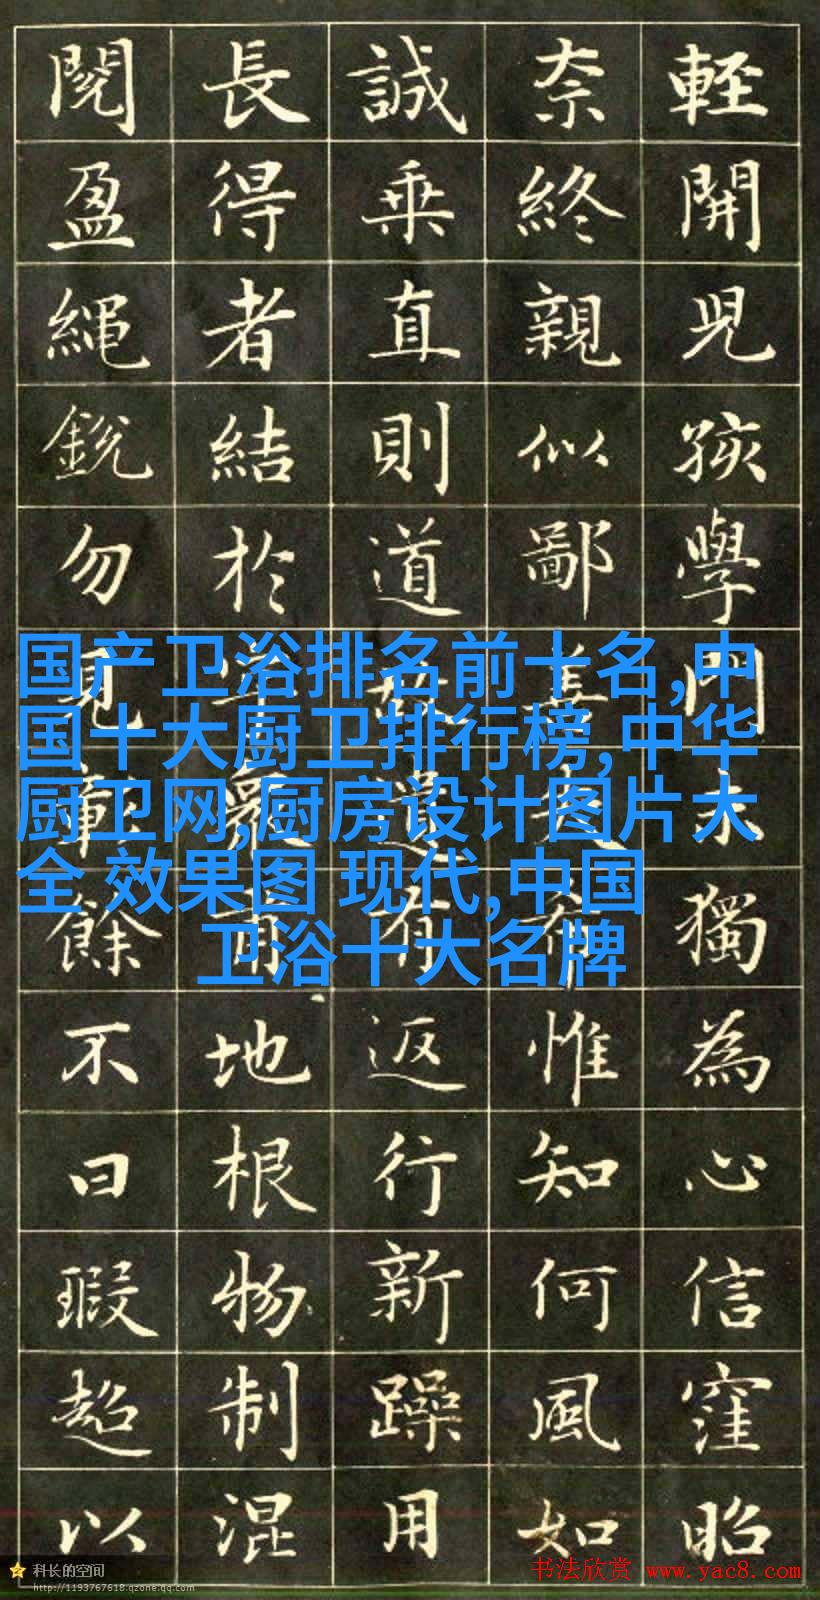 輊開児孩學門未獨為心信窪昭
奈終親似鄙善惟知何風如
誠乗直則道遺有返行新躁用
長得者結於嚴地根物制混
閱盈繩銳勿見餘不曰瑕超以
国产卫浴排名前十名,中
国十大厨卫排行榜,中华
厨卫网,厨房设计图片大
全 效果图 现代,中国
卫浴十大名牌
科长的空间
http://1193767618.qzone.qq.com
书法欣赏 www.yac8.com